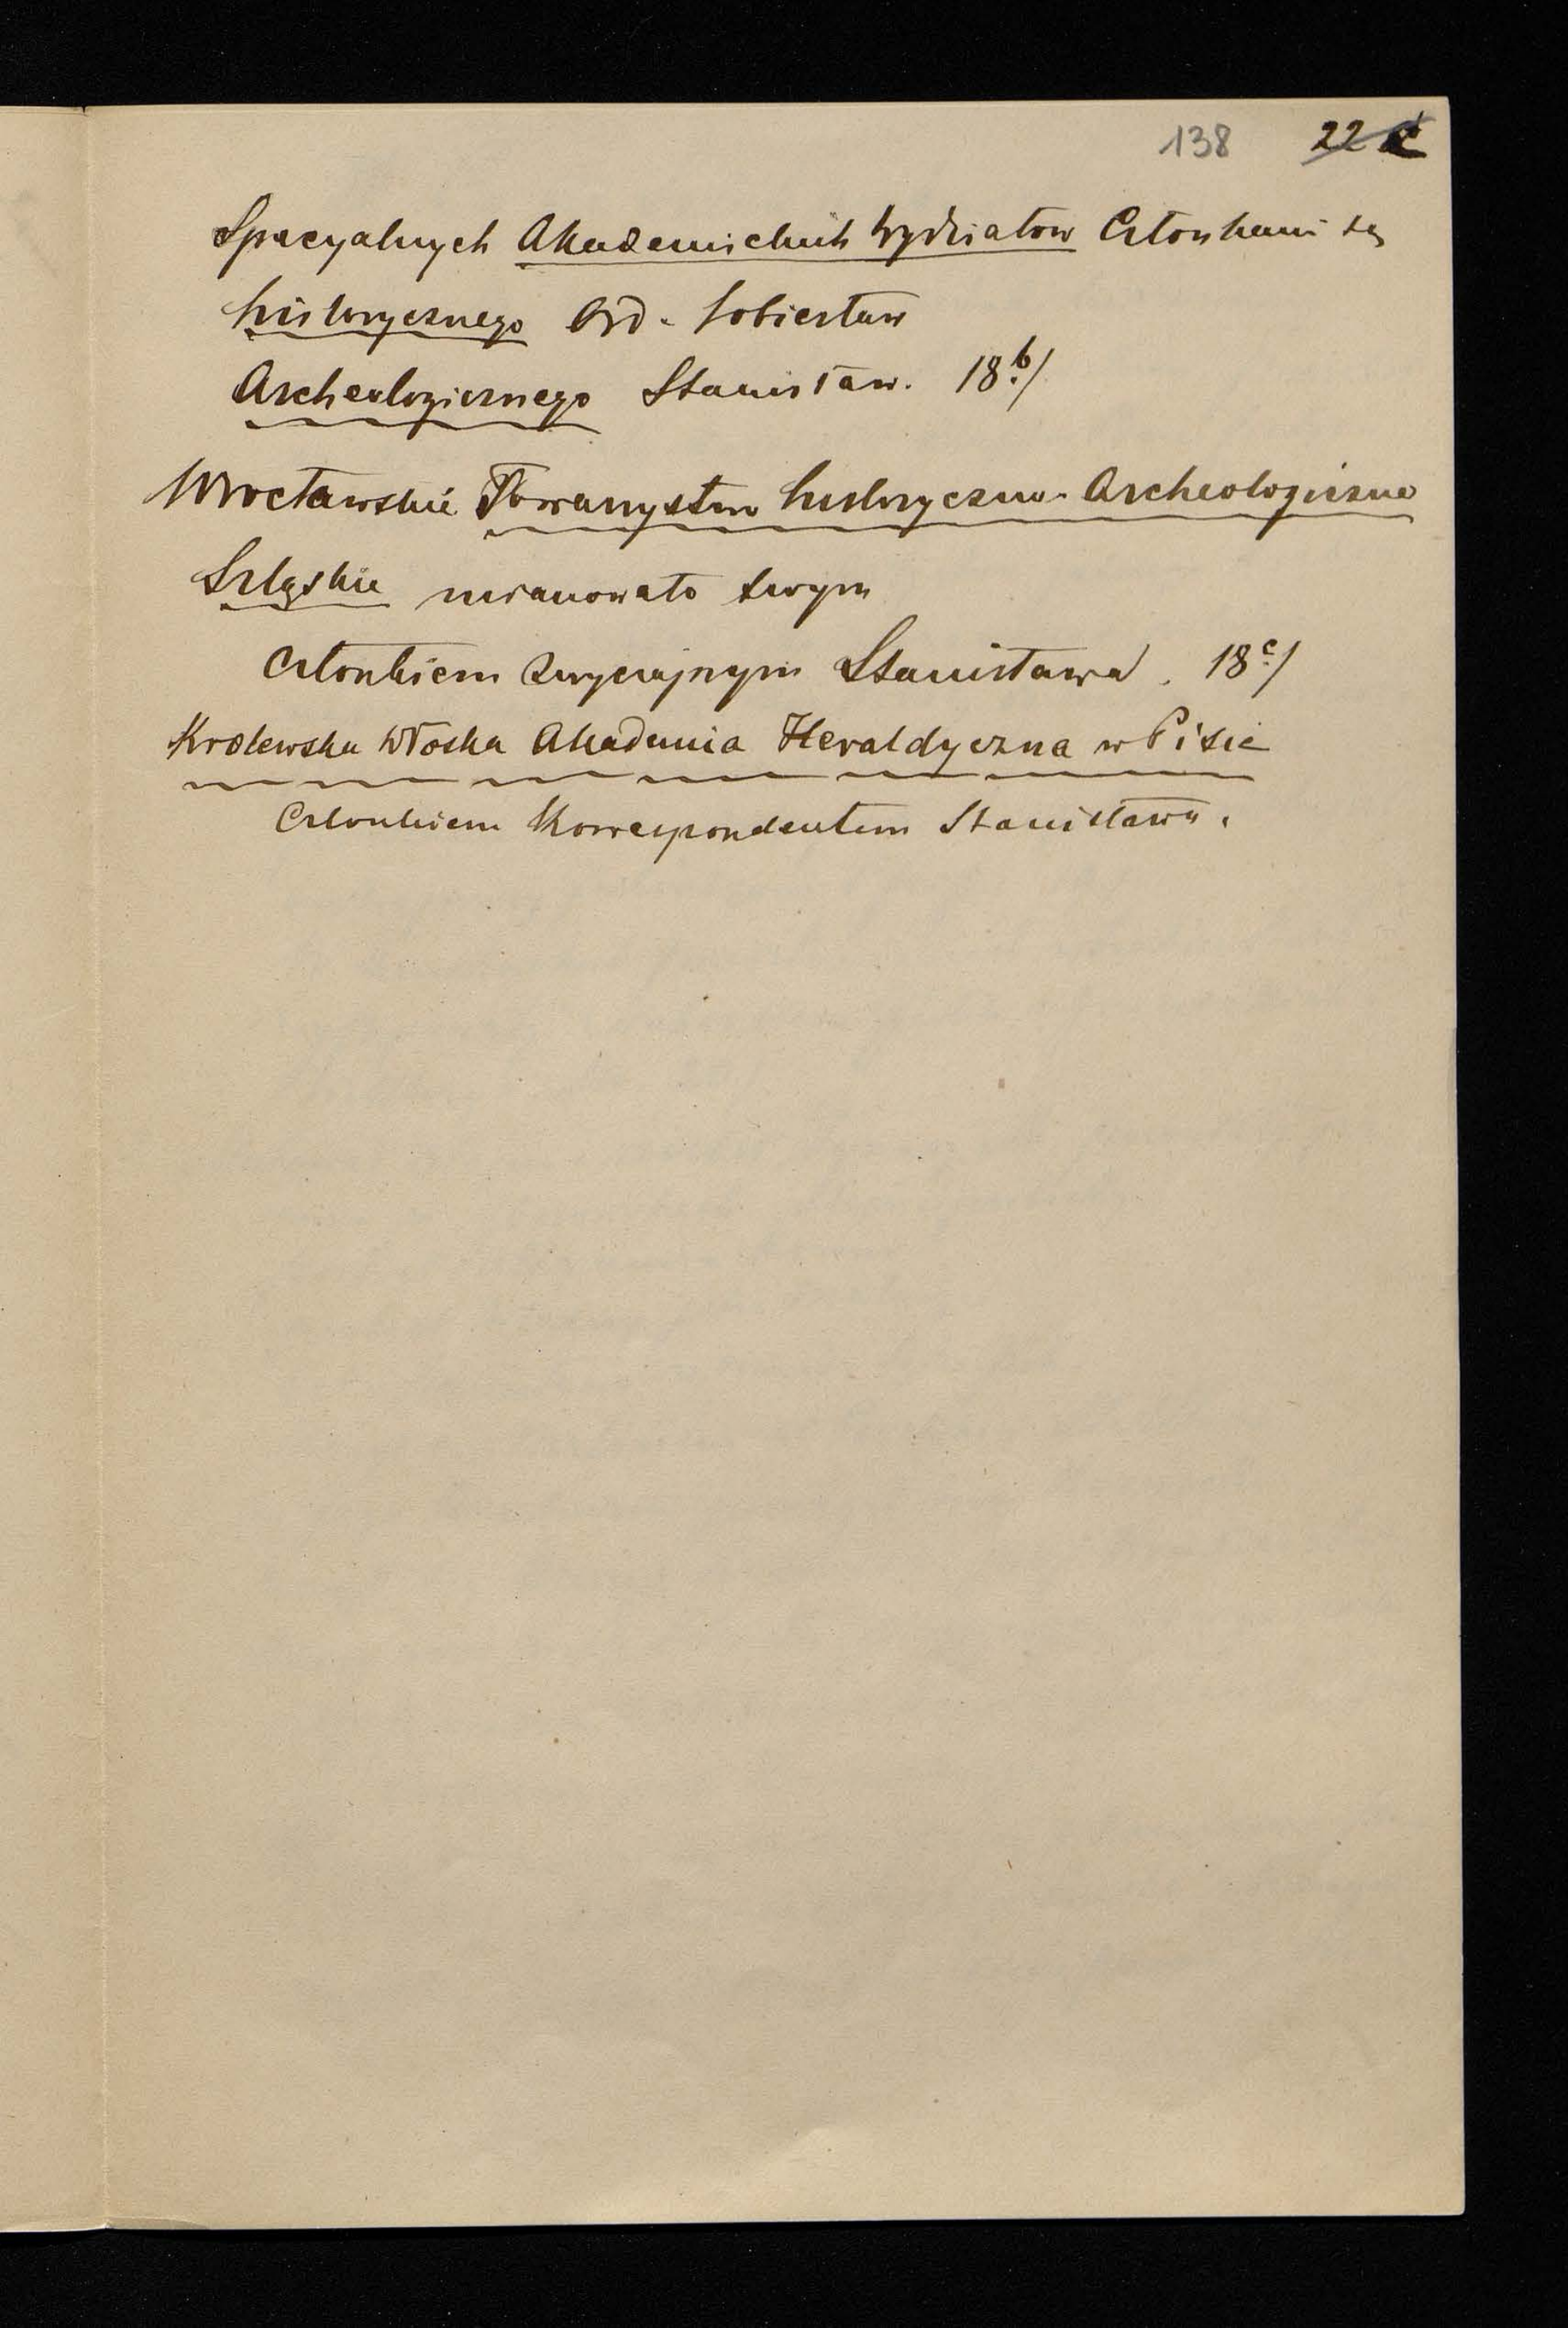 138 22 c
Specyalnych Akademickich wydziałów Członkami są
historycznego Ord. Sobiesław
Archeologicznego Stanisław. 18.b/
Wrocławskie Towarzystwo historyczno-Archeologiczne
Szląskie mianowało swym
Członkiem Zwyczajnym Stanisława. 18c./
Krolewska Włoska Akademia Heraldyczna w Pisie
Członkiem Korrespondentem Stanisława.